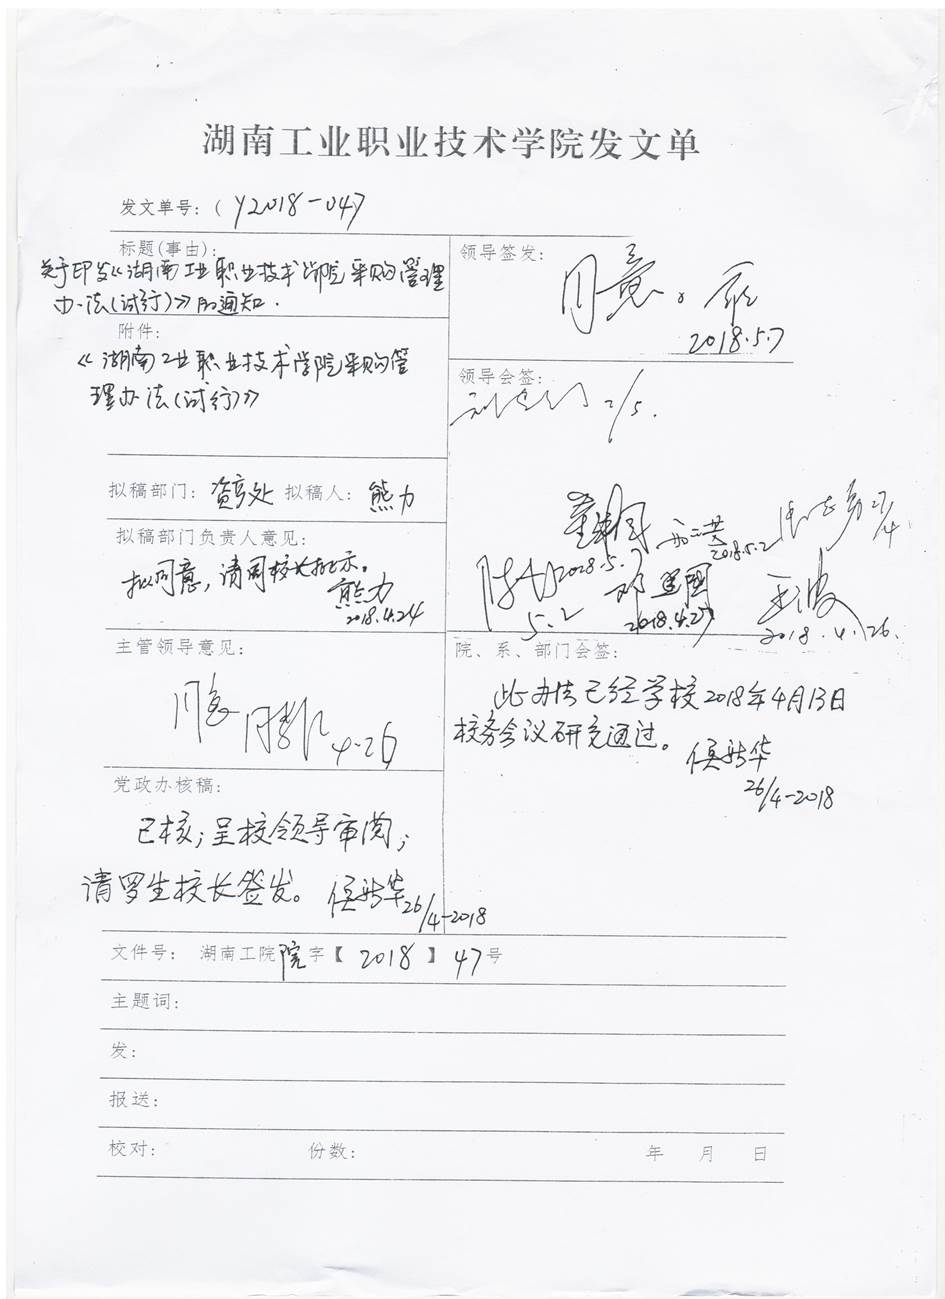 湖南工业职业技术学院发文单
发文单号：（Y2018-047
标题(事由)：
关于印发《湖南工业职业技术学院采购管理
办法(试行)》的通知.
附件：
《湖南工业职业技术学院采购管
理办法(试行)》
拟稿部门：资产处 拟稿人：熊力
拟稿部门负责人意见：
拟同意，请周校长批示。
熊力
2018.4.24
主管领导意见：
同意
4.26
党政办核稿：
已核；呈校领导审阅；
请罗生校长签发。侯新华
26/4-2018
领导签发：
同意。
2018.5.7
领导会签：
2/5.
2018.5.7
2018.5.2
27/4
5.2
邓建国
2018.4.27
王波
2018.4.26.
院、系、部门会签：
此办法已经学校2018年4月13日
校务会议研究通过。
侯新华
26/4-2018
文件号： 湖南工院院字【2018】47号
主题词：
发：
报送：
校对： 份数： 年 月 日